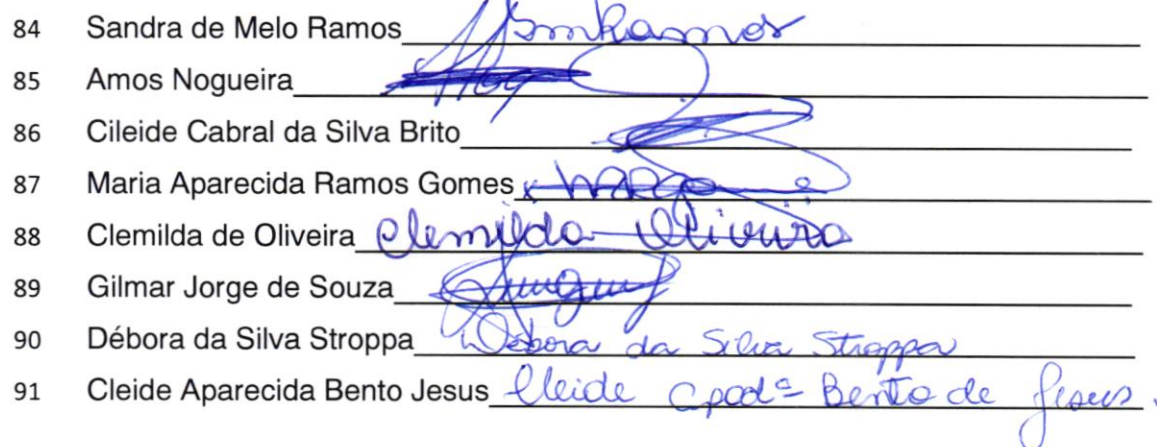 84 Sandra de Melo Ramos
85 Amos Nogueira
86 Cileide Cabral da Silva Brito
87 Maria Aparecida Ramos Gomes
88 Clemilda de Oliveira Clemilda Oliveira
89 Gilmar Jorge de Souza
90 Débora da Silva Stroppa Débora da Silva Stroppa
91 Cleide Aparecida Bento Jesus Cleide Apadª Bento de Jesus.